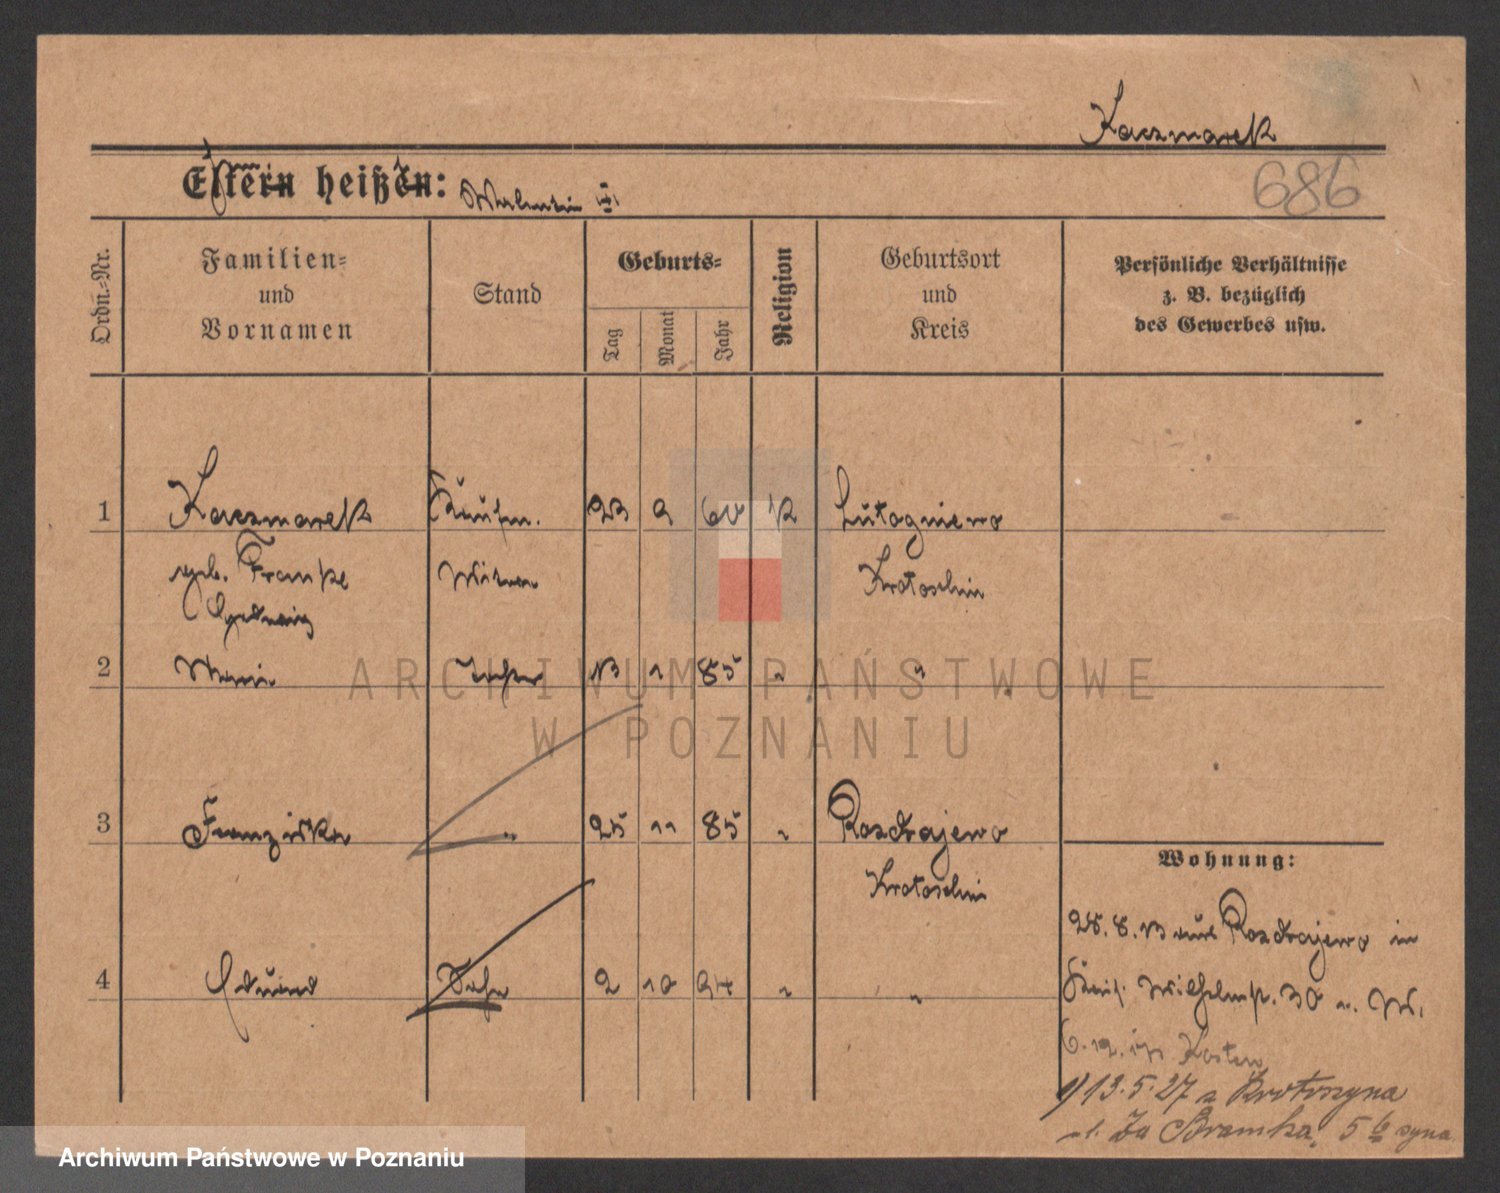 Kaczmarek
Eltern heißen:
686
Ordn.-Nr.
Familien-
und
Vornamen
Stand
Geburts-
Tag
Monat
Jahr
Religion
Geburtsort
und
Kreis
Persönliche Verhältnisse
z. B. bezüglich
des Gewerbes usw.
1 Kaczmarek Kaufm. 23 9 60 K Lutogniewo
geb. Franke Witwe Krotoschin
Hedwig
2 Tochter 13 1 85 " "
3 Franziska " 25 11 85 " Rozdrajewo
Krotoschin
Wohnung:
28. 8. 13 aus Rozdrajewo in
4 Eduard Sohn 2 10 94 " "
Wilhelmstr. 30
6. 12. 17 Kosten
13.5.27 z Krotoszyna
ul. Za Bramką 5 syna
ARCHIWUM PAŃSTWOWE
W POZNANIU
Archiwum Państwowe w Poznaniu